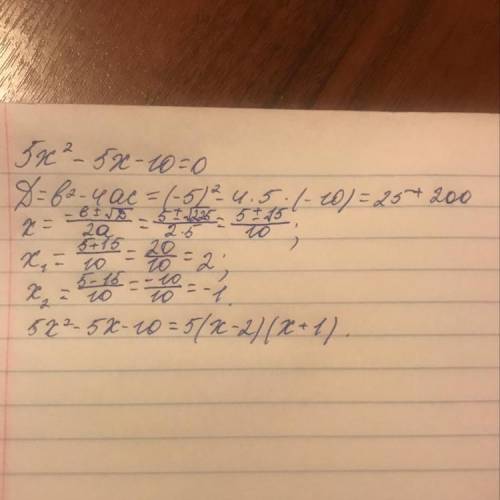 5x² - 5x - 10 = 0
D = b² - 4ac = (-5)² - 4 · 5 · (-10) = 25 + 200
x = (-b ± √D)/2a = (5 ± √225)/(2·5) = (5 ± 15)/10 ;
x₁ = (5+15)/10 = 20/10 = 2 ;
x₂ = (5-15)/10 = -10/10 = -1.
5x² - 5x - 10 = 5(x-2)(x+1).